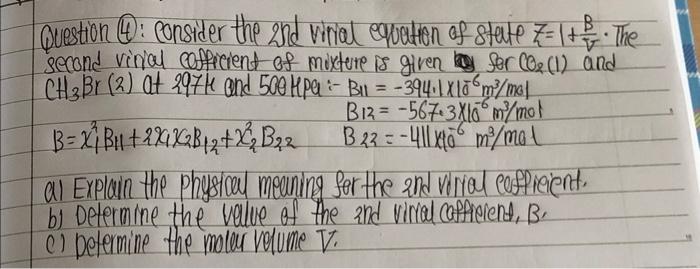 Question ④: consider the 2nd virial equation of state Z=1+B/V. The
second virial coefficient of mixture is given for CO₂(1) and
CH₃Br(2) at 297K and 500KPa:- B₁₁ = -394.1X10⁻⁶m³/mol
B₁₂ = -567.3X10⁻⁶ m³/mol
B=x₁²B₁₁+2X₁X₂B₁₂+X₂²B₂₂ B₂₂ = -411x10⁻⁶ m³/mol
a) Explain the physical meaning for the 2nd virial coefficient.
b) Determine the value of the 2nd virial coefficient, B.
c) Determine the molar volume V.